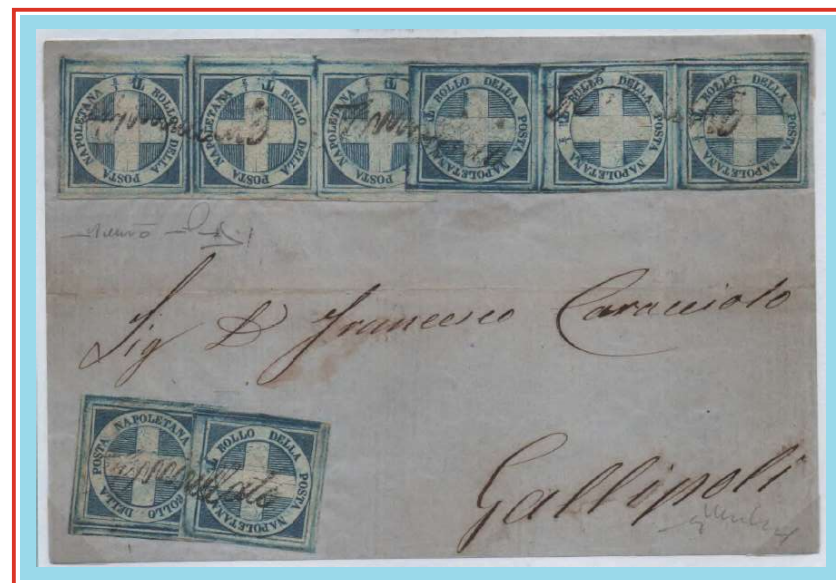 BOLLO DELLA POSTA NAPOLETANA
BOLLO DELLA POSTA NAPOLETANA
BOLLO DELLA POSTA NAPOLETANA
BOLLO DELLA POSTA NAPOLETANA
BOLLO DELLA POSTA NAPOLETANA
BOLLO DELLA POSTA NAPOLETANA
Annullato
Sig D Francesco Caracciolo
BOLLO DELLA POSTA NAPOLETANA
BOLLO DELLA POSTA NAPOLETANA
Annullato
Gallipoli